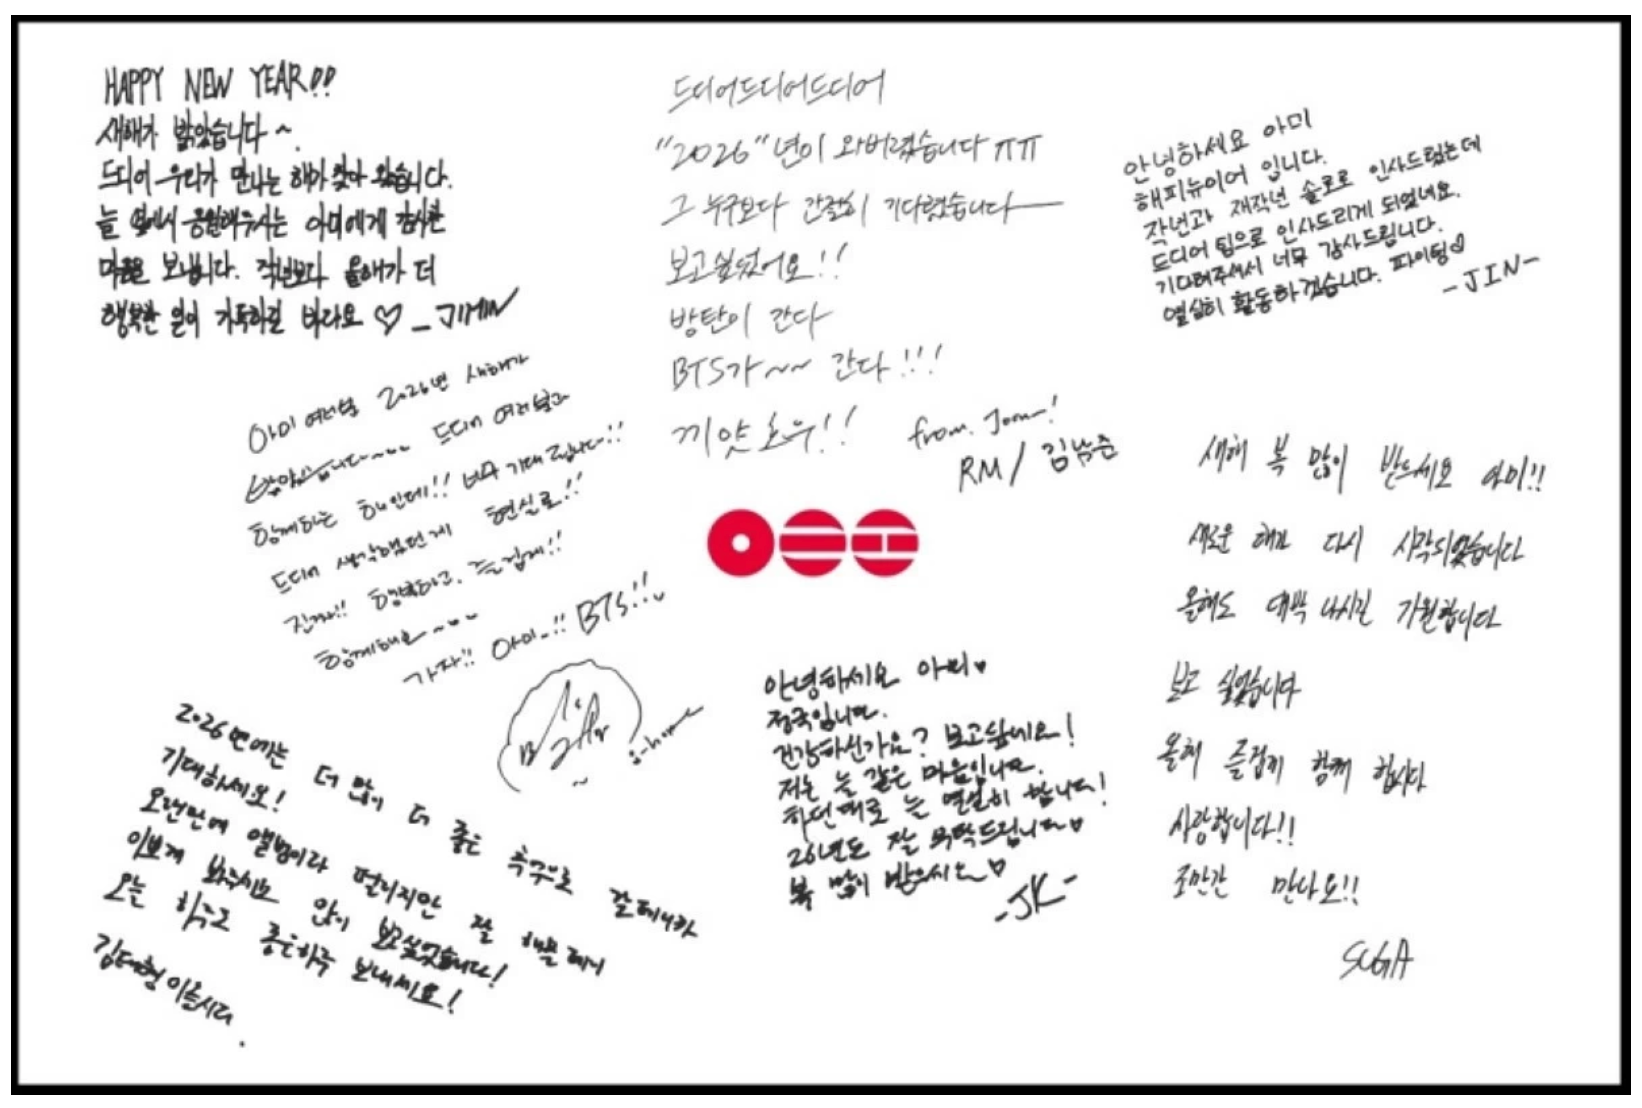 HAPPY NEW YEAR!!
새해가 밝았습니다~.
드디어 우리가 만나는 해가 찾아 왔습니다.
늘 옆에서 응원해주시는 아미에게 감사한
마음을 보냅니다. 작년보다 올해가 더
행복한 일이 가득하길 바라요 ♡ _ JIMIN
드디어드디어드디어
"2026"년이 와버렸습니다 ㅠㅠ
그 누구보다 간절히 기다렸습니다—
보고싶었어요!!
방탄이 간다
BTS가~~ 간다!!!
끼얏호우!!
from. Joon-!
RM / 김남준
안녕하세요 아미
해피뉴이어 입니다.
작년과 재작년 솔로로 인사드렸는데
드디어 팀으로 인사드리게 되었네요.
기다려주셔서 너무 감사드립니다.
열심히 활동하겠습니다. 파이팅♡
-JIN-
아미 여러분 2026년 새해가
밝았습니다~~~ 드디어 여러분과
함께하는 해인데!! 너무 기대됩니다~!!
드디어 생각했던게 현실로!!
진짜!! 행복하고, 즐겁게!!
함께해요~~~
가자!! 아미~!! BTS!!
j-hope
새해 복 많이 받으세요 아미!!
새로운 해가 다시 시작되었습니다
올해도 대박 나시길 기원합니다
보고 싶었습니다
올해 즐겁게 함께 합시다
사랑합니다!!
조만간 만나요!!
SUGA
2026년에는 더 많이 더 좋은 추억으로 갈테니까
기대하세요!
오랜만에 앨범이라 떨리지만 잘 해볼테니
이쁘게 봐주시요 많이 보고싶었습니다!
오늘 하루도 좋은하루 보내세요!
김태형이올시다.
안녕하세요 아미♥
정국입니다.
건강하신가요? 보고싶네요!
저는 늘 같은 마음입니다.
하던대로 늘 열심히 합니다!
26년도 잘 부탁드립니다♥
복 많이 받으시오♡
-JK-